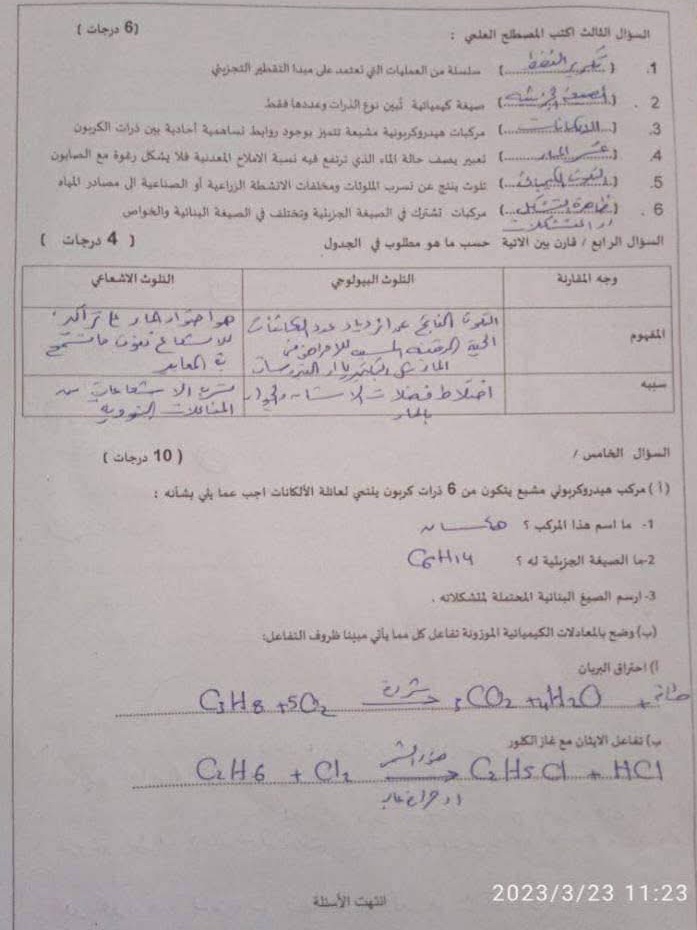 السؤال الثالث اكتب المصطلح العلمي : (6 درجات)
1. (تكرير النفط) سلسلة من العمليات التي تعتمد على مبدأ التقطير التجزيئي
2. (الصيغة الجزيئية) صيغة كيميائية تُبين نوع الذرات وعددها فقط
3. (الالكانات) مركبات هيدروكربونية مشبعة تتميز بوجود روابط تساهمية أحادية بين ذرات الكربون
4. (عسر الماء) تعبير يصف حالة الماء الذي ترتفع فيه نسبة الاملاح المعدنية فلا يشكل رغوة مع الصابون
5. (التلوث الكيميائي) تلوث ينتج عن تسرب الملوثات ومخلفات الانشطة الزراعية أو الصناعية ال مصادر المياه
6. (ظاهرة التشكل) مركبات تشترك في الصيغة الجزيئية وتختلف في الصيغة البنائية والخواص
او المتشكلات
السؤال الرابع / قارن بين الاتية حسب ما هو مطلوب في الجدول ( 4 درجات )
وجه المقارنة التلوث البيولوجي التلوث الاشعاعي
المفهوم
التلوث الناتج عن ازدياد عدد الكائنات
الحية الدقيقة المسببة للامراض من
الماء مثل البكتيريا او الفيروسات
هو احتواء الماء على تراكيز
للاشعاع تفوق ما تسمح
المعايير
سببه
اختلاط فضلات الانسان والحيوان
بالماء
تسرب الاشعاعات من
المفاعلات النووية
السؤال الخامس / ( 10 درجات )
(أ) مركب هيدروكربوني مشبع يتكون من 6 ذرات كربون ينتمي لعائلة الألكانات اجب عما يلي بشأنه :
1- ما اسم هذا المركب ؟ هكسان
2-ما الصيغة الجزيئية له ؟ C6H14
3-ارسم الصيغ البنائية المحتملة لمتشكلاته .
(ب) وضح بالمعادلات الكيميائية الموزونة تفاعل كل مما يأتي مبينا ظروف التفاعل:
أ) احتراق البربان
C3H8 + 5O2 شرارة → 3CO2 + 4H2O + طاقة
ب) تفاعل الايثان مع غاز الكلور
C2H6 + Cl2 ضوء الشمس → C2H5Cl + HCl
او حرارة عالية
انتهت الأسئلة
2023/3/23 11:23